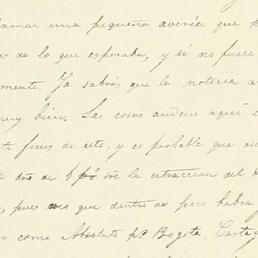 una pequeña avería que
de lo que esperaba, y si no fuere
mente. Ya sabrás que la noticia
muy bien. Las cosas andan aquí
fines de este, y es probable que
de la extracción del
pues que dentro de poco habrá
como Absoluto pa Bogotá, Cartag